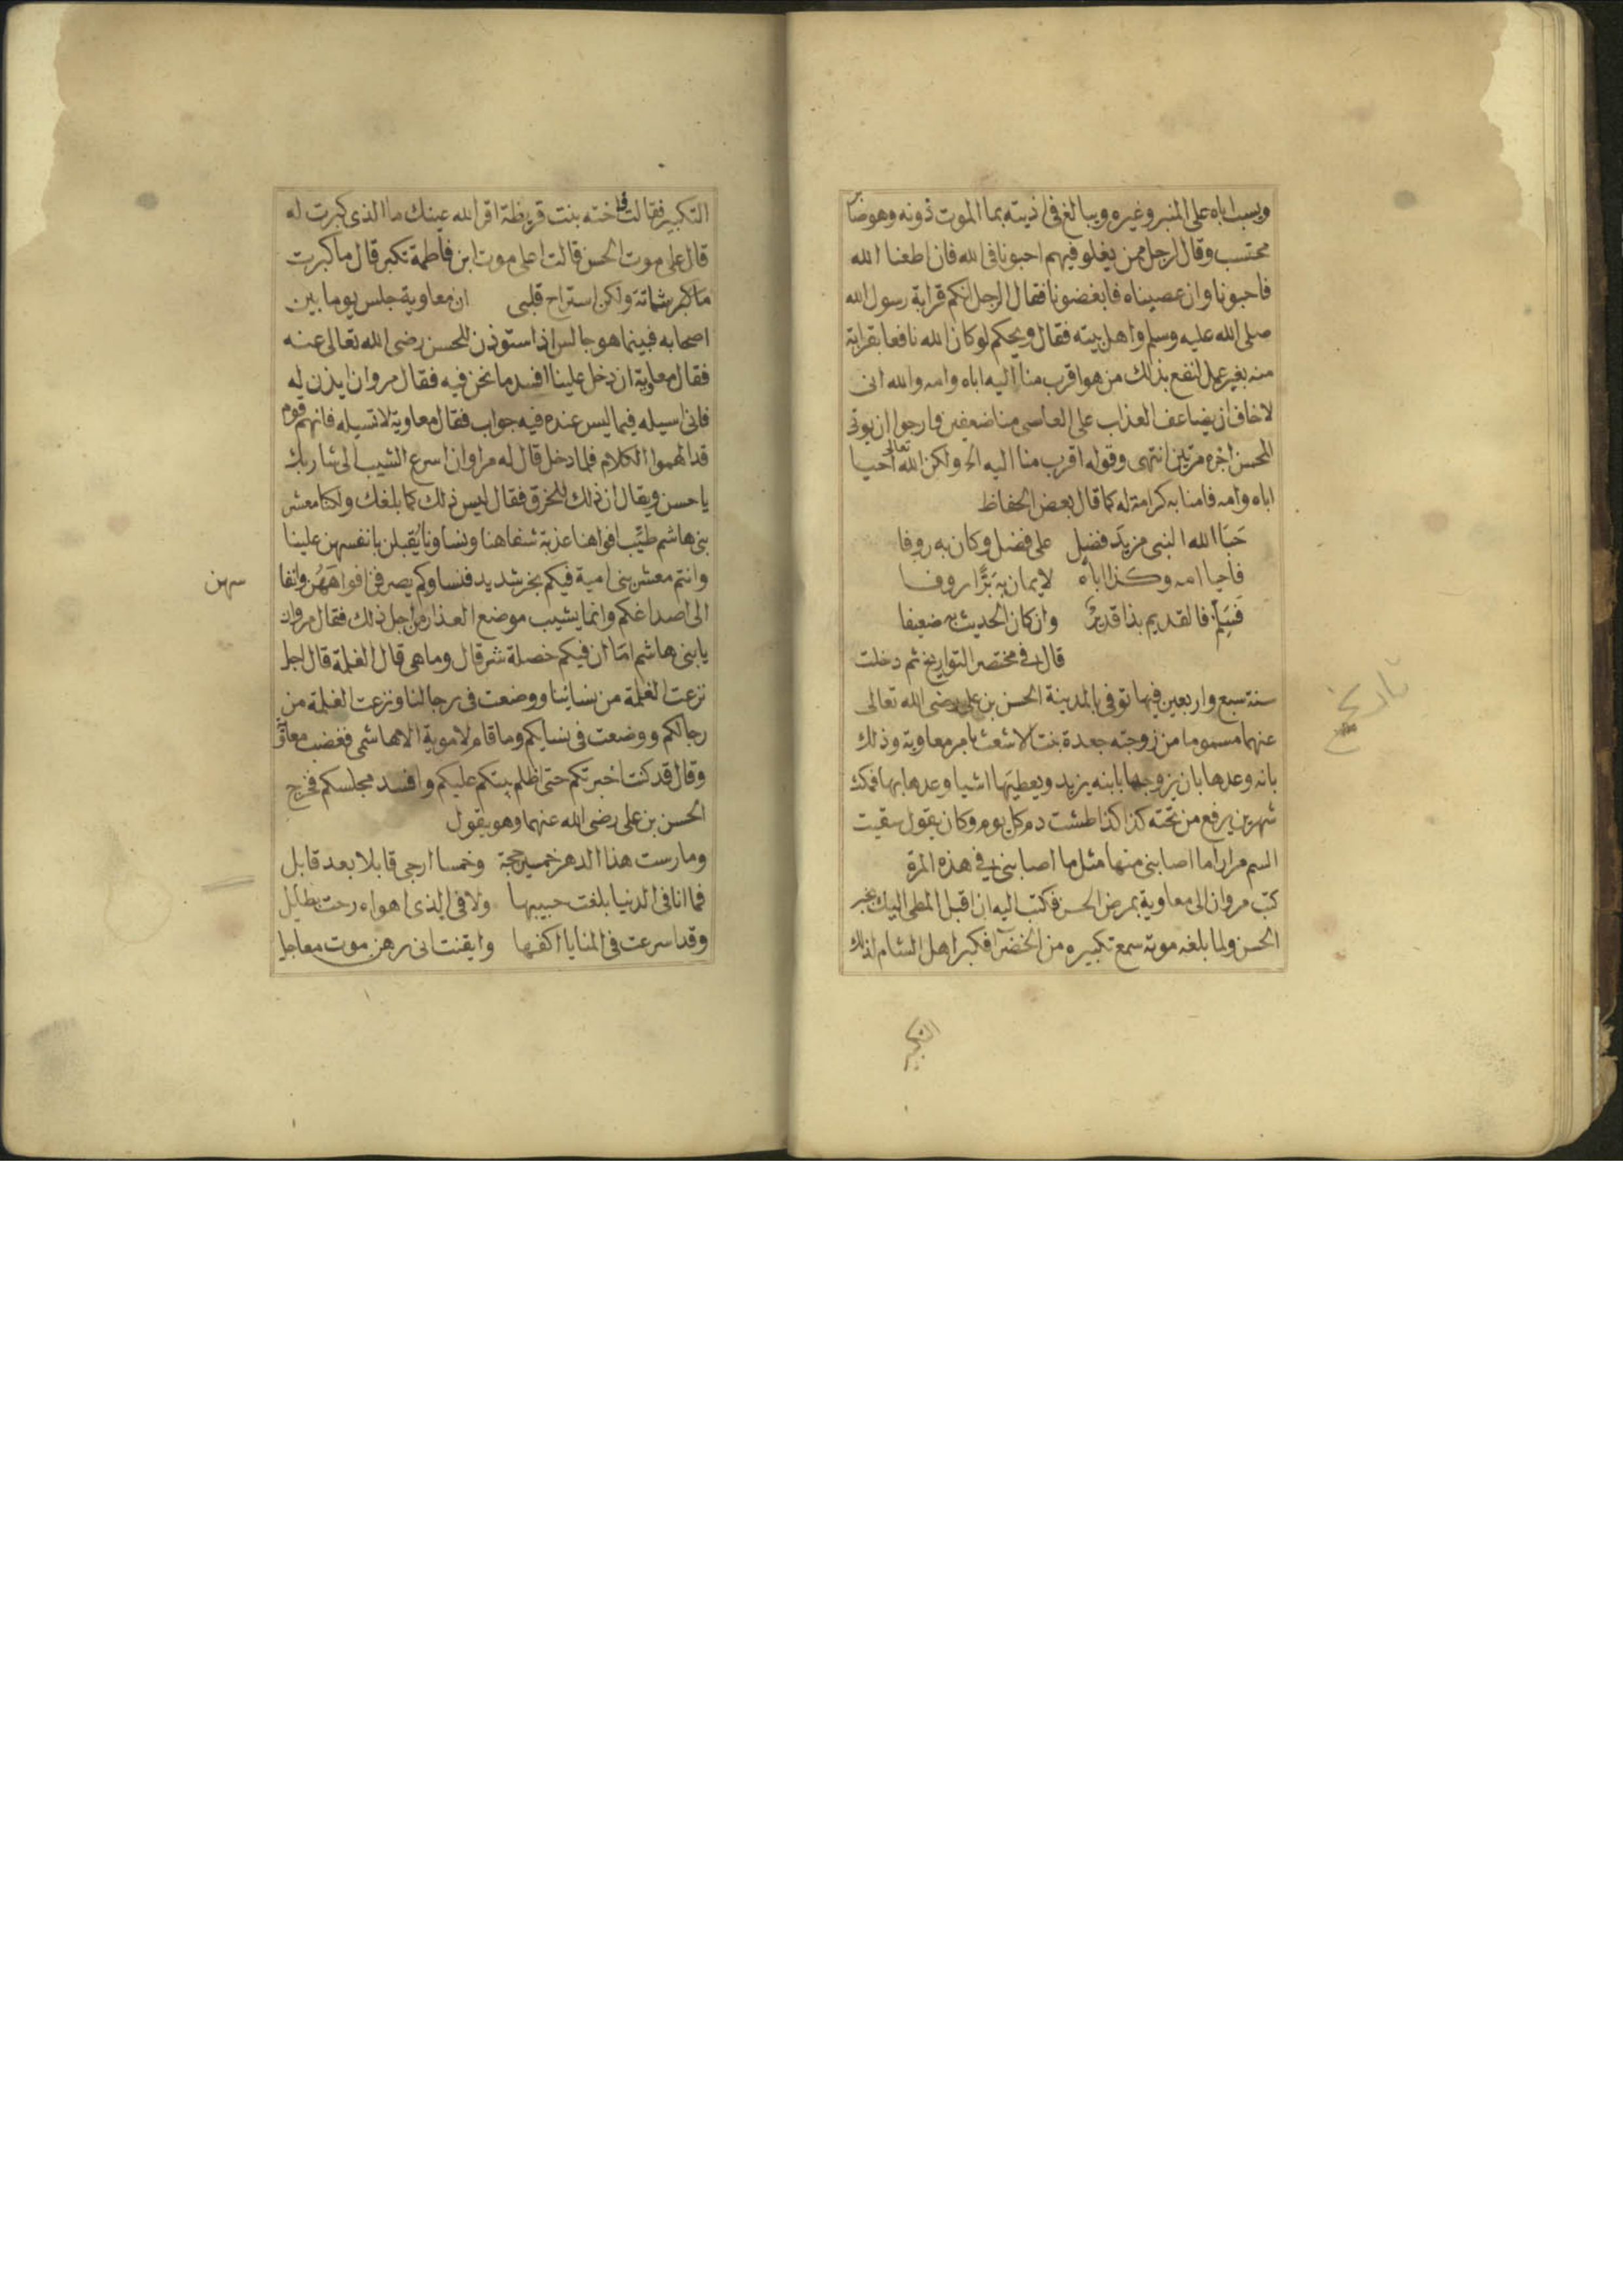 ويسب اباه على المنبر وغيره ويبالغ في اذيته بما الموت دونه وهو صابر
محتسب وقال لرجل ممن يغلو فيهم احبونا في الله فان اطعنا الله
فاحبونا وان عصيناه فابغضونا فقال الرجل انكم قرابة رسول الله
صلى الله عليه وسلم واهل بيته فقال ويحكم لو كان الله نافعا بقرابة
منه بغير عمل لنفع بذلك من هو اقرب منا اليه اباه وامه والله انى
لاخاف ان يضاعف العذاب على العاصى منا ضعفين وارجوا ان يوتى
المحسن اجره مرتين انتهى وقوله اقرب منا اليه الخ ولكن الله تعالى احيا
اباه وامه فامنا به كرامة له كما قال بعض الحفاظ
حَبَا الله النبى مزيدَ فضلٍ على فضل وكان به روفا
فاحيا امه وكذا اباه لايمان به بَرًّا روفا
فسَلِّم فالقديم بذا قديرٌ وان كان الحديث به ضعيفا
قال في مختصر التواريخ ثم دخلت
سنة سبع واربعين فيها توفى بالمدينة الحسن بن على رضى الله تعالى
عنهما مسموما من زوجته جعدة بنت الاشعث بامر معاوية وذلك
بانه وعدها بان يزوجها بابنه يزيد ويعطيها اشيا وعدها بها فمكث
شهرين يرفع من تحته كذا كذا طشت دم كل يوم وكان يقول سقيت
السم مرارا ما اصابنى منها مثل ما اصابنى في هذه المرة
كتب مروان الى معاوية بمرض الحسن فكتب اليه ان اقبل المطى اليك بخبر
الحسن ولما بلغه موته سمع تكبيره من الخضرآ فكبر اهل الشام لذلك
التكبير
تاريخ
التكبير فقالت فاخته بنت قريظة اقر الله عينك ما الذى كبرت له
قال على موت الحسن قالت اعلى موت ابن فاطمة تكبر قال ما كبرت
ما كبر شماتة ولكن استراح قلبى ان معاوية جلس يوما بين
اصحابه فبينما هو جالس اذ استوذن للحسن رضى الله تعالى عنه
فقال معاوية ان دخل علينا افسد ما نحن فيه فقال مروان ايذن له
فانى اسيله فيما ليس عنده فيه جواب فقال معاوية لا تسيله فانهم قوم
قد الهموا الكلام فلما دخل قال له مراوان اسرع الشيب الى شاربك
يا حسن ويقال ان ذلك للخرق فقال ليس ذلك كما بلغك ولكنا معشر
بنى هاشم طيّب افواهنا عذبة شفاهنا ونساونا يُقبلن بانفسهن علينا
وانتم معشر بنى امية فيكم بخر شديد فنساوكم يصرفن افواههُن وانفا
سهن
الى اصداغكم وانما يشيب موضع العذار من اجل ذلك فقال مروان
يا بنى هاشم امّا ان فيكم خصلة شر قال وما هى قال الغلمة قال اجل
نزعت الغلمة من نسائنا ووضعت فى رجالنا ونزعت الغلمة من
رجالكم ووضعت فى نسايكم وما قام لاموية الا هاشمى فغضب معاوية
وقال قد كنت اخبرتكم حتى اظلم بيتكم عليكم وافسد مجلسكم فخرج
الحسن بن على رضى الله عنهما وهو يقول
ومارست هذا الدهر خمسين حجة وخمسا ارجى قابلا بعد قابل
فما انا فى الدنيا بلغت حبيبها ولا فى الذى اهواه رحت بطايل
وقد اسرعت فى المنايا اكفها وايقنت انى رهن موت معاجل